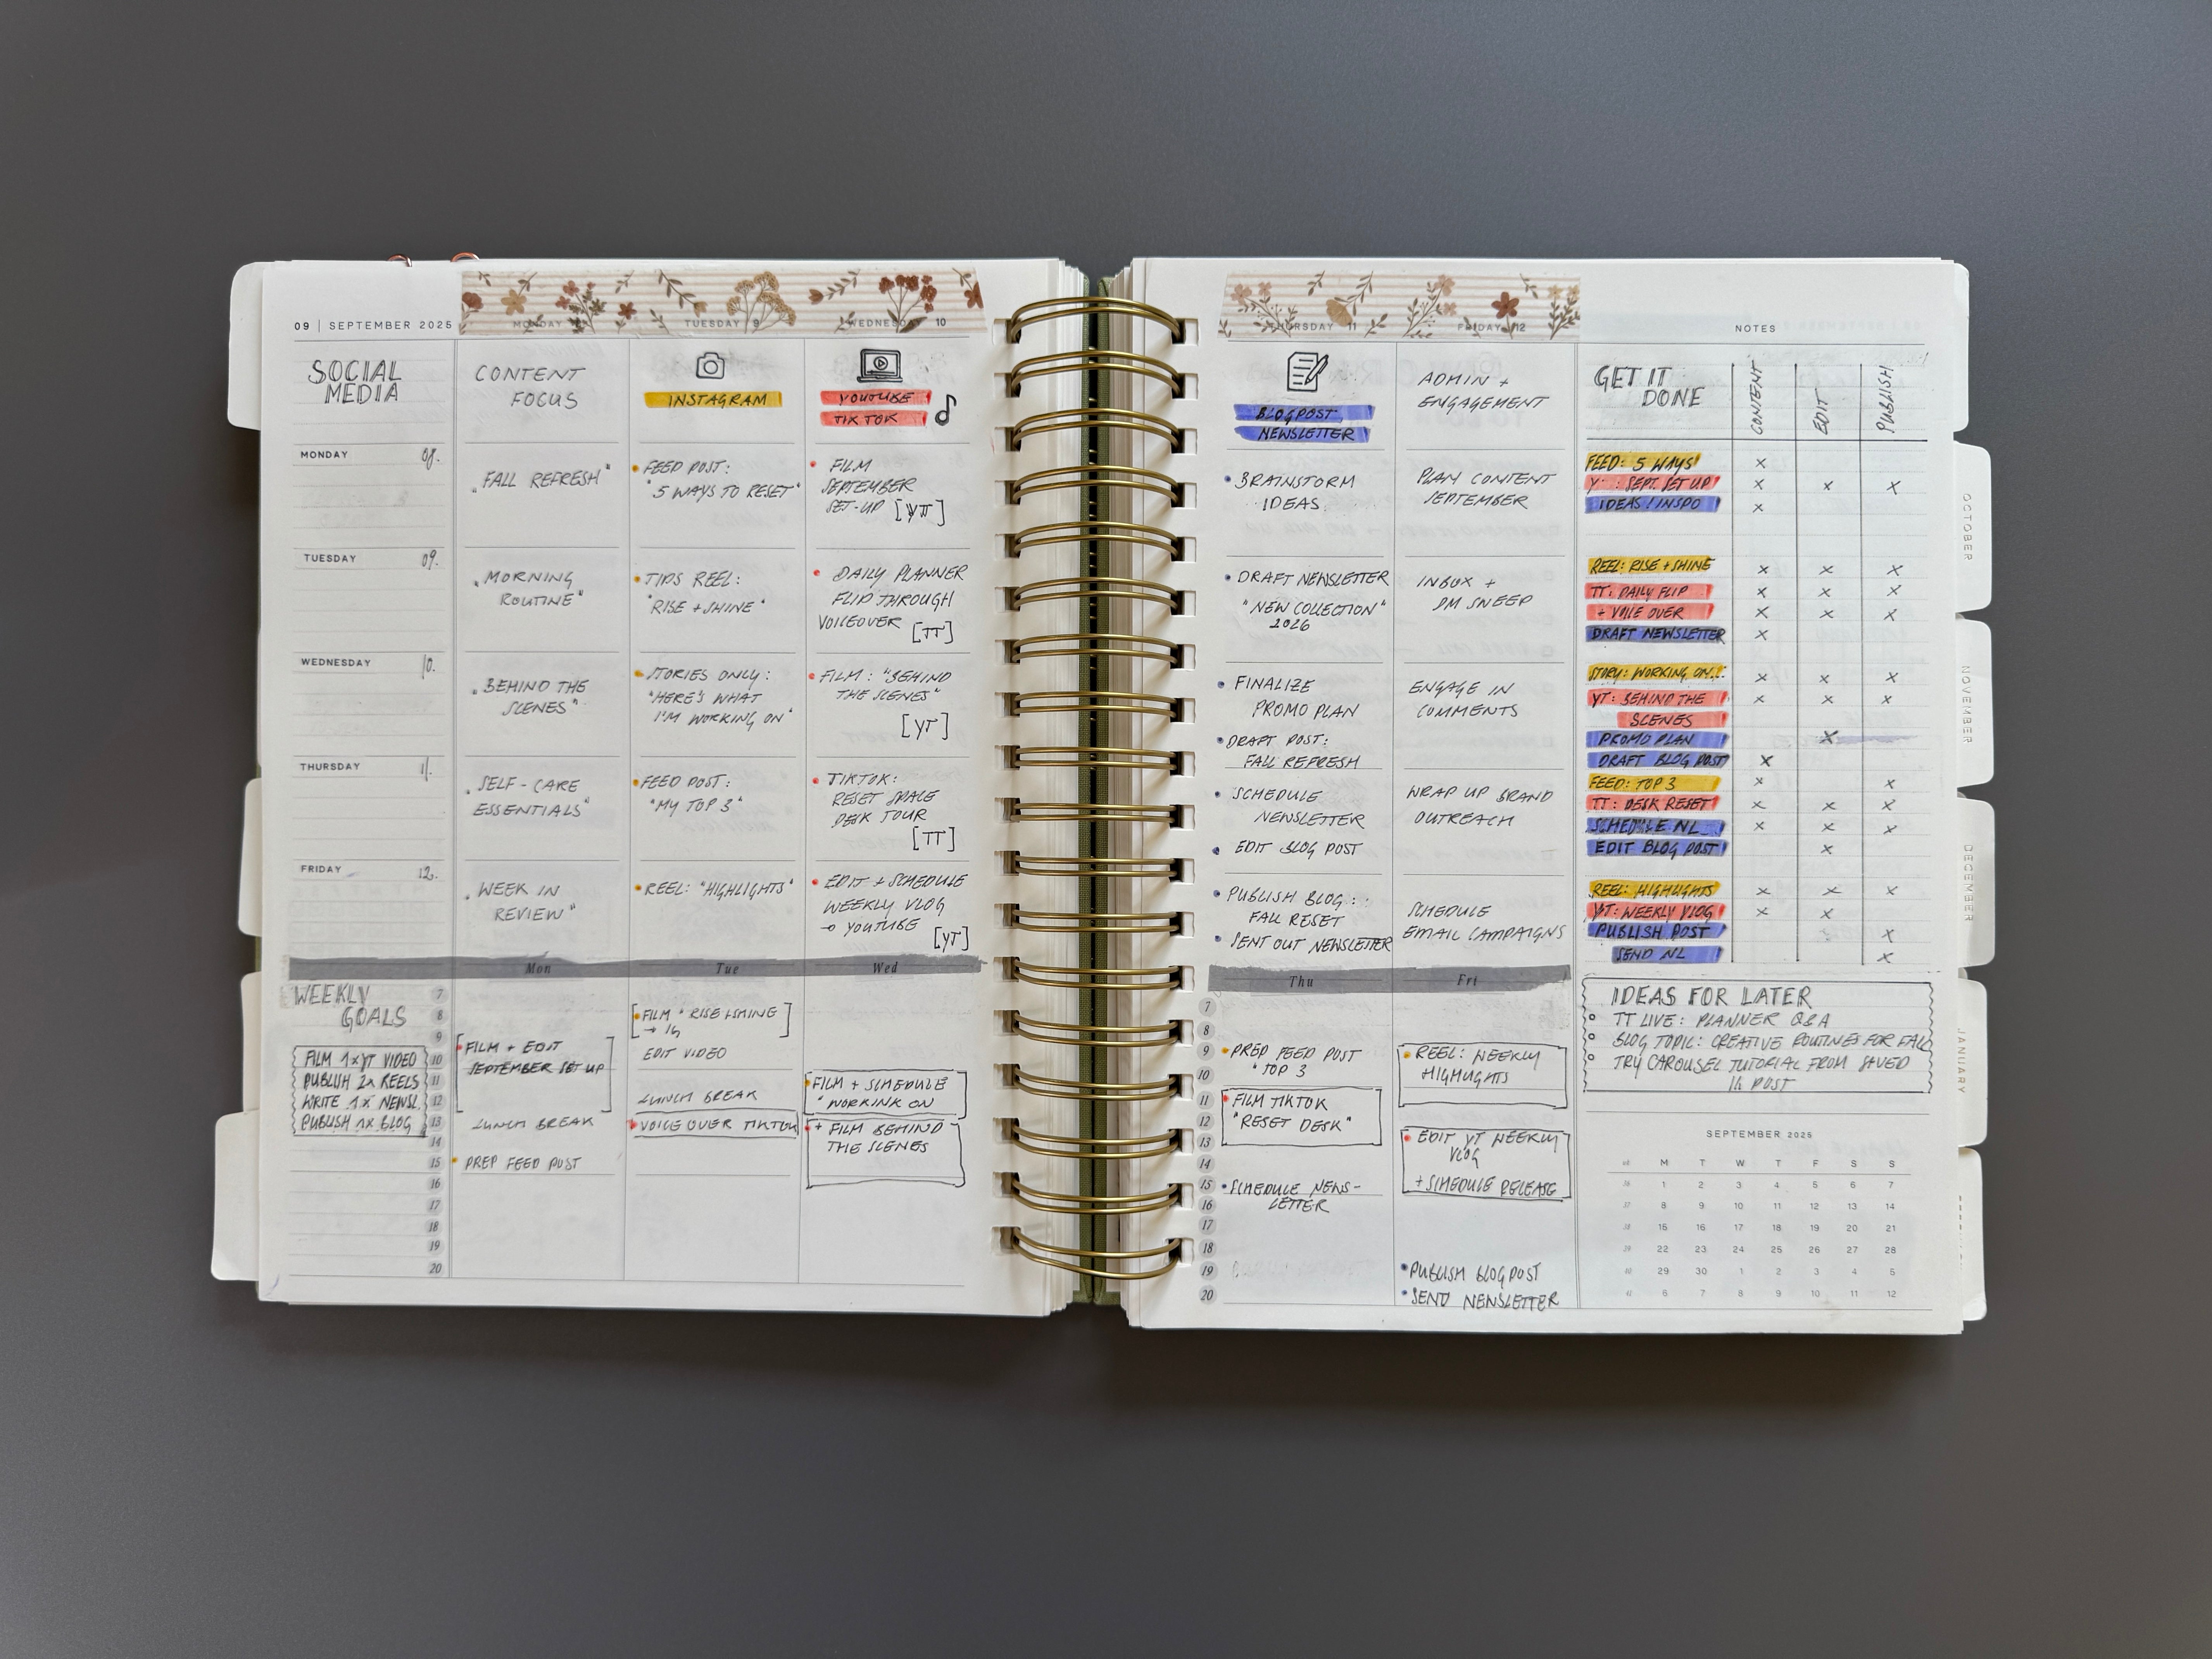 09 | SEPTEMBER 2025
MONDAY
TUESDAY 9
WEDNESDAY 10
SOCIAL
MEDIA
CONTENT
FOCUS
INSTAGRAM
YOUTUBE
TIKTOK
MONDAY 08.
"FALL REFRESH"
FEED POST:
"5 WAYS TO RESET"
FILM
SEPTEMBER
SET-UP [YT]
TUESDAY 09.
"MORNING
ROUTINE"
TIPS REEL:
"RISE + SHINE"
DAILY PLANNER
FLIP THROUGH
VOICEOVER [TT]
WEDNESDAY 10.
"BEHIND THE
SCENES"
STORIES ONLY:
"HERE'S WHAT
I'M WORKING ON"
FILM: "BEHIND
THE SCENES"
[YT]
THURSDAY 11.
"SELF-CARE
ESSENTIALS"
FEED POST:
"MY TOP 3"
TIKTOK:
RESET SPACE
DESK TOUR
[TT]
FRIDAY 12.
"WEEK IN
REVIEW"
REEL: "HIGHLIGHTS"
EDIT + SCHEDULE
WEEKLY VLOG
→ YOUTUBE
[YT]
Mon
Tue
Wed
WEEKLY
GOALS
FILM 1x YT VIDEO
PUBLISH 2x REELS
WRITE 1x NEWSL.
PUBLISH 1x BLOG
7
8
9
10
11
12
13
14
15
16
17
18
19
20
FILM + EDIT
SEPTEMBER SET UP
LUNCH BREAK
PREP FEED POST
FILM "RISE + SHINE
→ IG
EDIT VIDEO
LUNCH BREAK
VOICE OVER TIKTOK
FILM + SCHEDULE
"WORKINK ON
+ FILM BEHIND
THE SCENES
THURSDAY 11
FRIDAY 12
NOTES
BLOGPOST
NEWSLETTER
ADMIN +
ENGAGEMENT
GET IT
DONE
CONTENT
EDIT
PUBLISH
BRAINSTORM
IDEAS
PLAN CONTENT
SEPTEMBER
FEED: 5 WAYS X
: SEPT. SET UP X X X
IDEAS / INSPO X
DRAFT NEWSLETTER
"NEW COLLECTION"
2026
INBOX +
DM SWEEP
REEL: RISE + SHINE X X X
TT: DAILY FLIP X X X
+ VOICE OVER X X X
DRAFT NEWSLETTER X
FINALIZE
PROMO PLAN
DRAFT POST:
FALL REFRESH
ENGAGE IN
COMMENTS
STORY: WORKING ON... X X X
YT: BEHIND THE X X X
SCENES
PROMO PLAN X
DRAFT BLOG POST X
SCHEDULE
NEWSLETTER
EDIT BLOG POST
WRAP UP BRAND
OUTREACH
FEED: TOP 3 X X
TT: DESK RESET X X X
SCHEDULE NL X X X
EDIT BLOG POST X
PUBLISH BLOG:
FALL RESET
SENT OUT NEWSLETTER
SCHEDULE
EMAIL CAMPAIGNS
REEL: HIGHLIGHTS X X X
YT: WEEKLY VLOG X X
PUBLISH POST X
SEND NL X
Thu
Fri
7
8
9
10
11
12
13
14
15
16
17
18
19
20
PREP FEED POST
"TOP 3
FILM TIKTOK
"RESET DESK"
SCHEDULE NEWS-
LETTER
REEL: WEEKLY
HIGHLIGHTS
EDIT YT WEEKLY
VLOG
+ SCHEDULE RELEASE
PUBLISH BLOGPOST
SEND NEWSLETTER
IDEAS FOR LATER
TT LIVE: PLANNER Q&A
BLOG TOPIC: CREATIVE ROUTINES FOR FALL
TRY CAROUSEL TUTORIAL FROM SAVED
IG POST
SEPTEMBER 2025
M T W T F S S
36 1 2 3 4 5 6 7
37 8 9 10 11 12 13 14
38 15 16 17 18 19 20 21
39 22 23 24 25 26 27 28
40 29 30 1 2 3 4 5
41 6 7 8 9 10 11 12
OCTOBER
NOVEMBER
DECEMBER
JANUARY